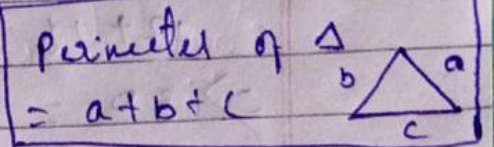 Perimeter of Δ
= a+b+c
b
a
c